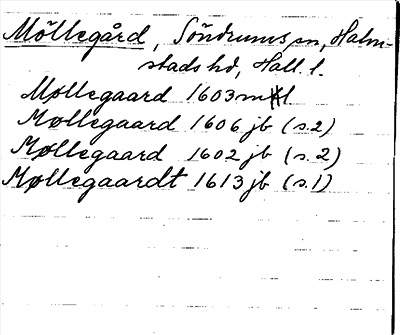 Möllegård, Söndrums sn, Halm-
stads hd, Hall. l.
Møllegaard 1603 mtl
Møllegaard 1606 jb (s.2)
Møllegaard 1602 jb (s.2)
Møllegaardt 1613 jb (s.1)